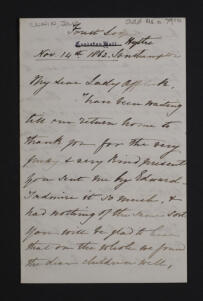 Hythe
Nov. 14th 1862. Southampton
My dear Lady
I have been waiting
till our return home to
thank you for the very
& very kind present
you sent me by Edward.
I admire it so much, &
had nothing of the same sort
You will be glad to hear
that on the whole we found
the dear children well,